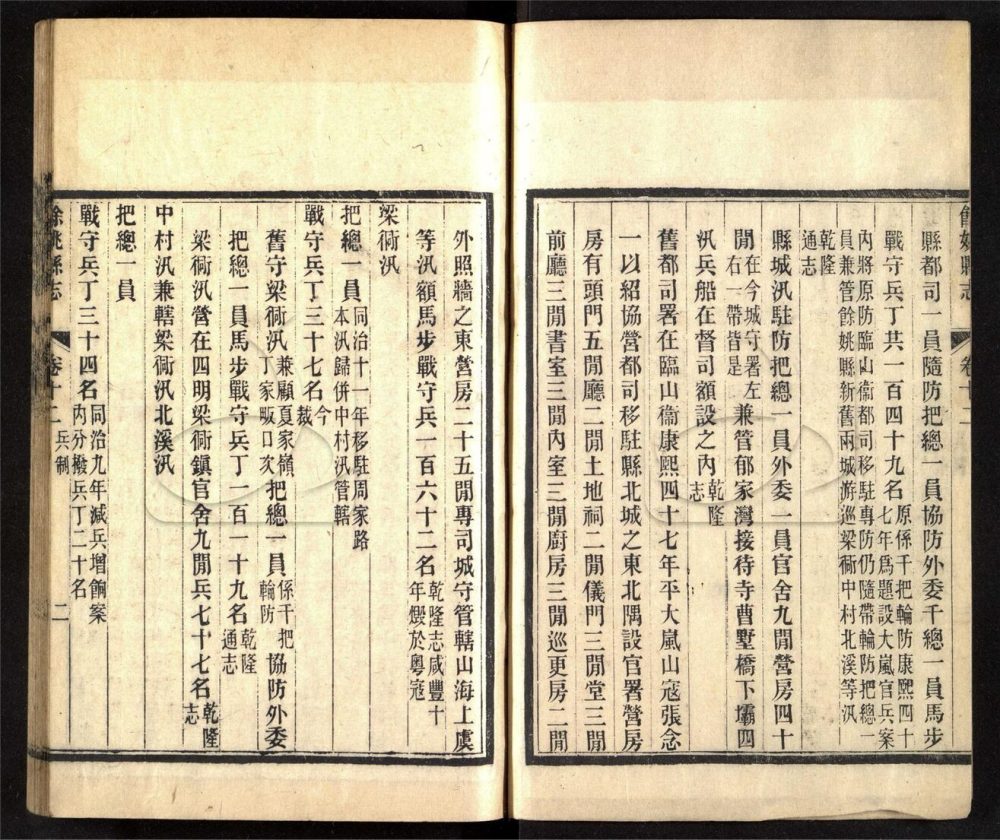 餘姚縣志
卷十二
縣都司一員隨防把總一員協防外委千總一員馬步
戰守兵丁共一百四十九名原係千把輪防康熙四十
七年爲題設大嵐官兵案
內將原防臨山衞都司移駐專防仍隨帶輪防把總一
員兼管餘姚縣新舊兩城游巡梁衕中村北溪等汛
乾隆
通志
縣城汛駐防把總一員外委一員官舍九閒營房四十
閒在今城守署左
右一帶皆是兼管郁家灣接待寺曹墅橋下壩四
汛兵船在督司額設之內乾隆
志
舊都司署在臨山衞康熙四十七年平大嵐山寇張念
一以紹協營都司移駐縣北城之東北隅設官署營房
房有頭門五閒廳二閒土地祠二閒儀門三閒堂三閒
前廳三閒書室三閒內室三閒廚房三閒巡更房二閒
外照牆之東營房二十五閒專司城守管轄山海上虞
等汛額馬步戰守兵一百六十二名乾隆志咸豐十
年燬於粵寇
梁衕汛
把總一員同治十一年移駐周家路
本汛歸併中村汛管轄
戰守兵丁三十七名今
裁
舊守梁衕汛兼顧夏家嶺
丁家畈口次把總一員係千把
輪防協防外委
把總一員馬步戰守兵丁一百一十九名乾隆
通志
梁衕汛營在四明梁衕鎮官舍九閒兵七十七名乾隆
志
中村汛兼轄梁衕汛北溪汛
把總一員
戰守兵丁三十四名同治九年減兵增餉案
內分撥兵丁二十名
餘姚縣志
卷十二
兵制
二